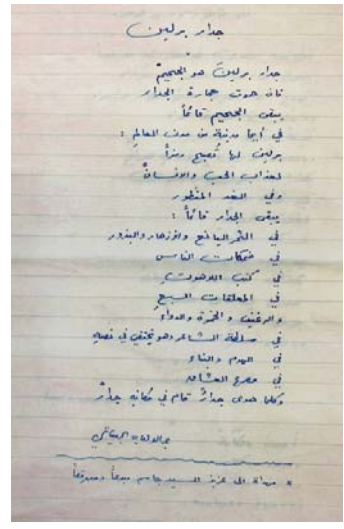 جدار برلين
جدار برلين هو الجحيم
فان هوت حجارة الجدار
يبقى الجحيم قائماً
في أيما مدينة من مدن العالم :
برلين لها تصبح رمزاً
لعذاب الحب والانسان
وفي الغد المنظور
يبقى الجدار قائماً :
في الثمر اليانع والأزهار والبذور
في ضحكات الناس
في كتب اللاهوت
في المعلقات السبع
والرغيف والخمرة والدواء
في سلطة الشاعر وهو يختفي في قصيده
في الهدم والبناء
في مصرع العشاق
وكلما هوى جدار قام في مكانه جدار
عبدالوهاب البياتي
* مهداة الى عزيز السيد جاسم مبدعاً